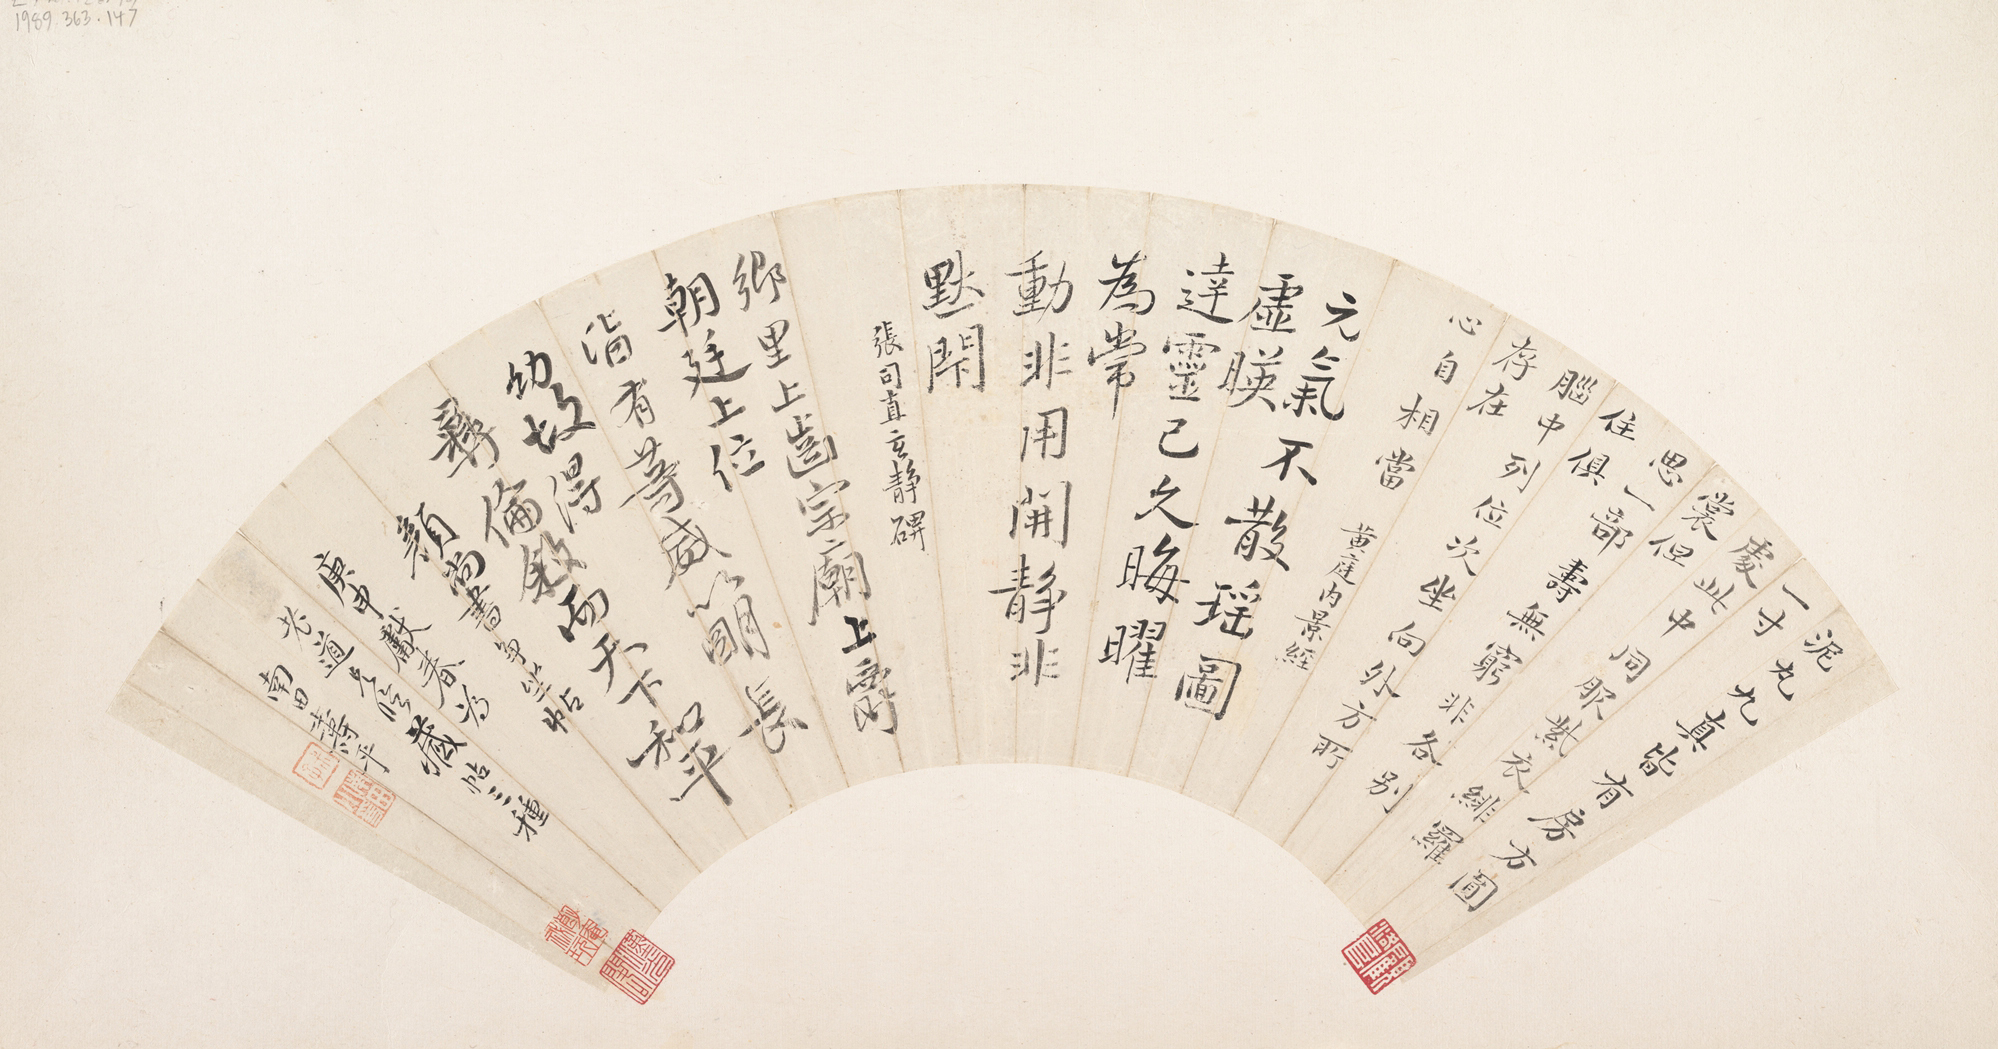 泥丸九真皆有房方圓
一寸
處此中同服紫衣緋羅
裳但
思一部壽無窮非各別
住俱
腦中列位次坐向外方所
存在
心自相當
黃庭內景經
元氣不散瑤圖
虛暎
達靈已久晦曜
為常
動非用開靜非
默閇
張司直玄靜碑
鄉里上齒宗廟上爵
朝廷上位
皆有等威以明長
幼故得
彝倫敘而天下和平
顏尚書爭坐帖
庚申獻春為
老道臨藏帖三種
南田壽平
1989.363.147